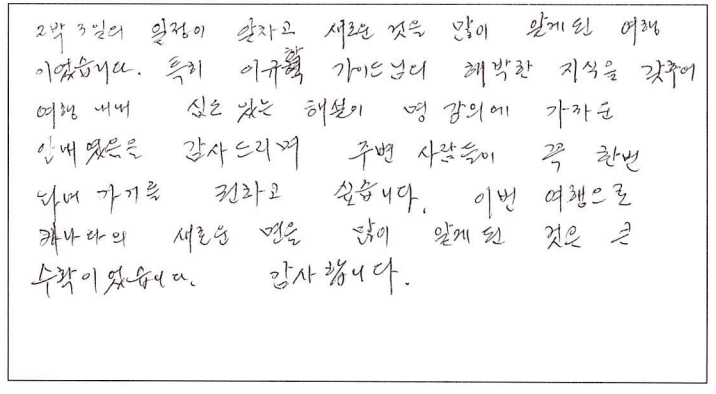 2박 3일의 일정이 알차고 새로운 것을 많이 알게 된 여행
이었습니다. 특히 이규 가이드님의 해박한 지식을 갖추어
여행 내내 심은 있는 해설이 명 강의에 가까운
안내였음을 감사드리며 주변 사람들이 꼭 한번
다녀 가기를 권하고 싶습니다. 이번 여행으로
캐나다의 새로운 면을 많이 알게 된 것은 큰
수확이었습니다. 감사합니다.